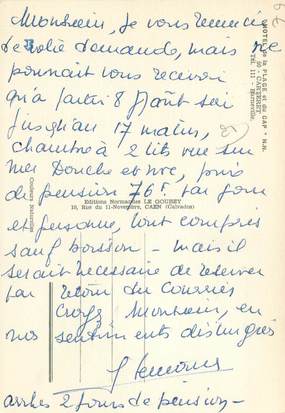 Monsieur, je vous remercie
de votre demande, mais ne
pourrait vous recevoir
qu'à partir 8 Août soir
jusqu'au 17 matin,
chambre à 2 lits vue sur
mer Douche et wc, prix
de pension 76F. par jour
et personne, tout compris
sauf boisson - mais il
serait nécessaire de réserver
par retour du courrier
Croyez Monsieur, en
nos sentiments distingués
arrhes 2 jours de pension -
HOTEL de la PLAGE et du CAP * N.N.
TÉL. 111 - Barneville
Editions Normandes LE GOUBEY
16, Rue du 11-Novembre, CAEN (Calvados)
Couleurs naturelles